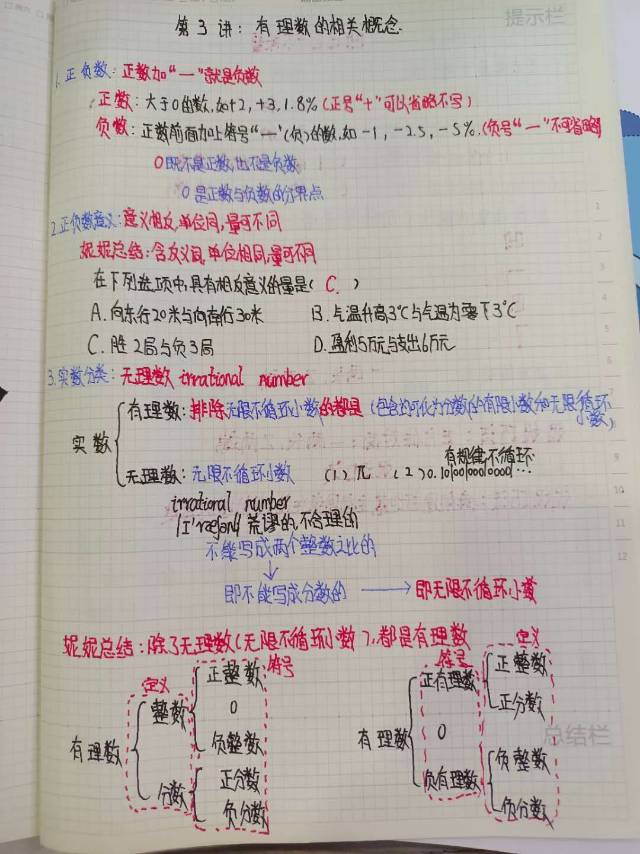 提示栏
第3讲：有理数的相关概念.
1.正负数：正数加“一”就是负数
正数：大于0的数，如+2，+3，1.8%（正号“+”可以省略不写）
负数：正数前面加上符号“一”（负）的数，如-1，-2.5，-5%.（负号“一”不可省略）
0既不是正数，也不是负数
0是正数与负数的分界点
2.正负数意义：意义相反，单位同，量可不同
妮妮总结：含反义词，单位相同，量可不同
在下列选项中，具有相反意义的量是（ C. ）
A.向东行20米与向南行30米 B.气温升高3℃与气温为零下3℃
C.胜2局与负3局 D.盈利5万元与支出6万元
3.实数分类：无理数 irrational number
实数
有理数：排除无限不循环小数的都是（包含均可化为分数的有限小数和无限循环小数）
有规律不循环
无理数：无限不循环小数 （1）π （2）0.1010010001…
irrational number
荒谬的，不合理的
不能写成两个整数之比的
↓
即不能写成分数的 → 即无限不循环小数
妮妮总结：除了无理数（无限不循环小数），都是有理数
定义 符号
有理数
整数
正整数
0
负整数
分数
正分数
负分数
符号 定义
有理数
正有理数
正整数
正分数
0
负有理数
负整数
负分数
总结栏
1
2
3
4
5
6
7
8
9
10
11
12